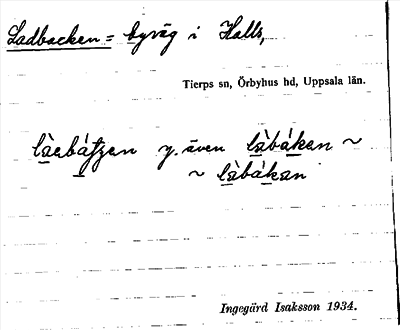 Ladbacken = byväg i Halls,
Tierps sn, Örbyhus hd, Uppsala län.
y. även làbáken ~
~ làbákan
Ingegärd Isaksson 1934.